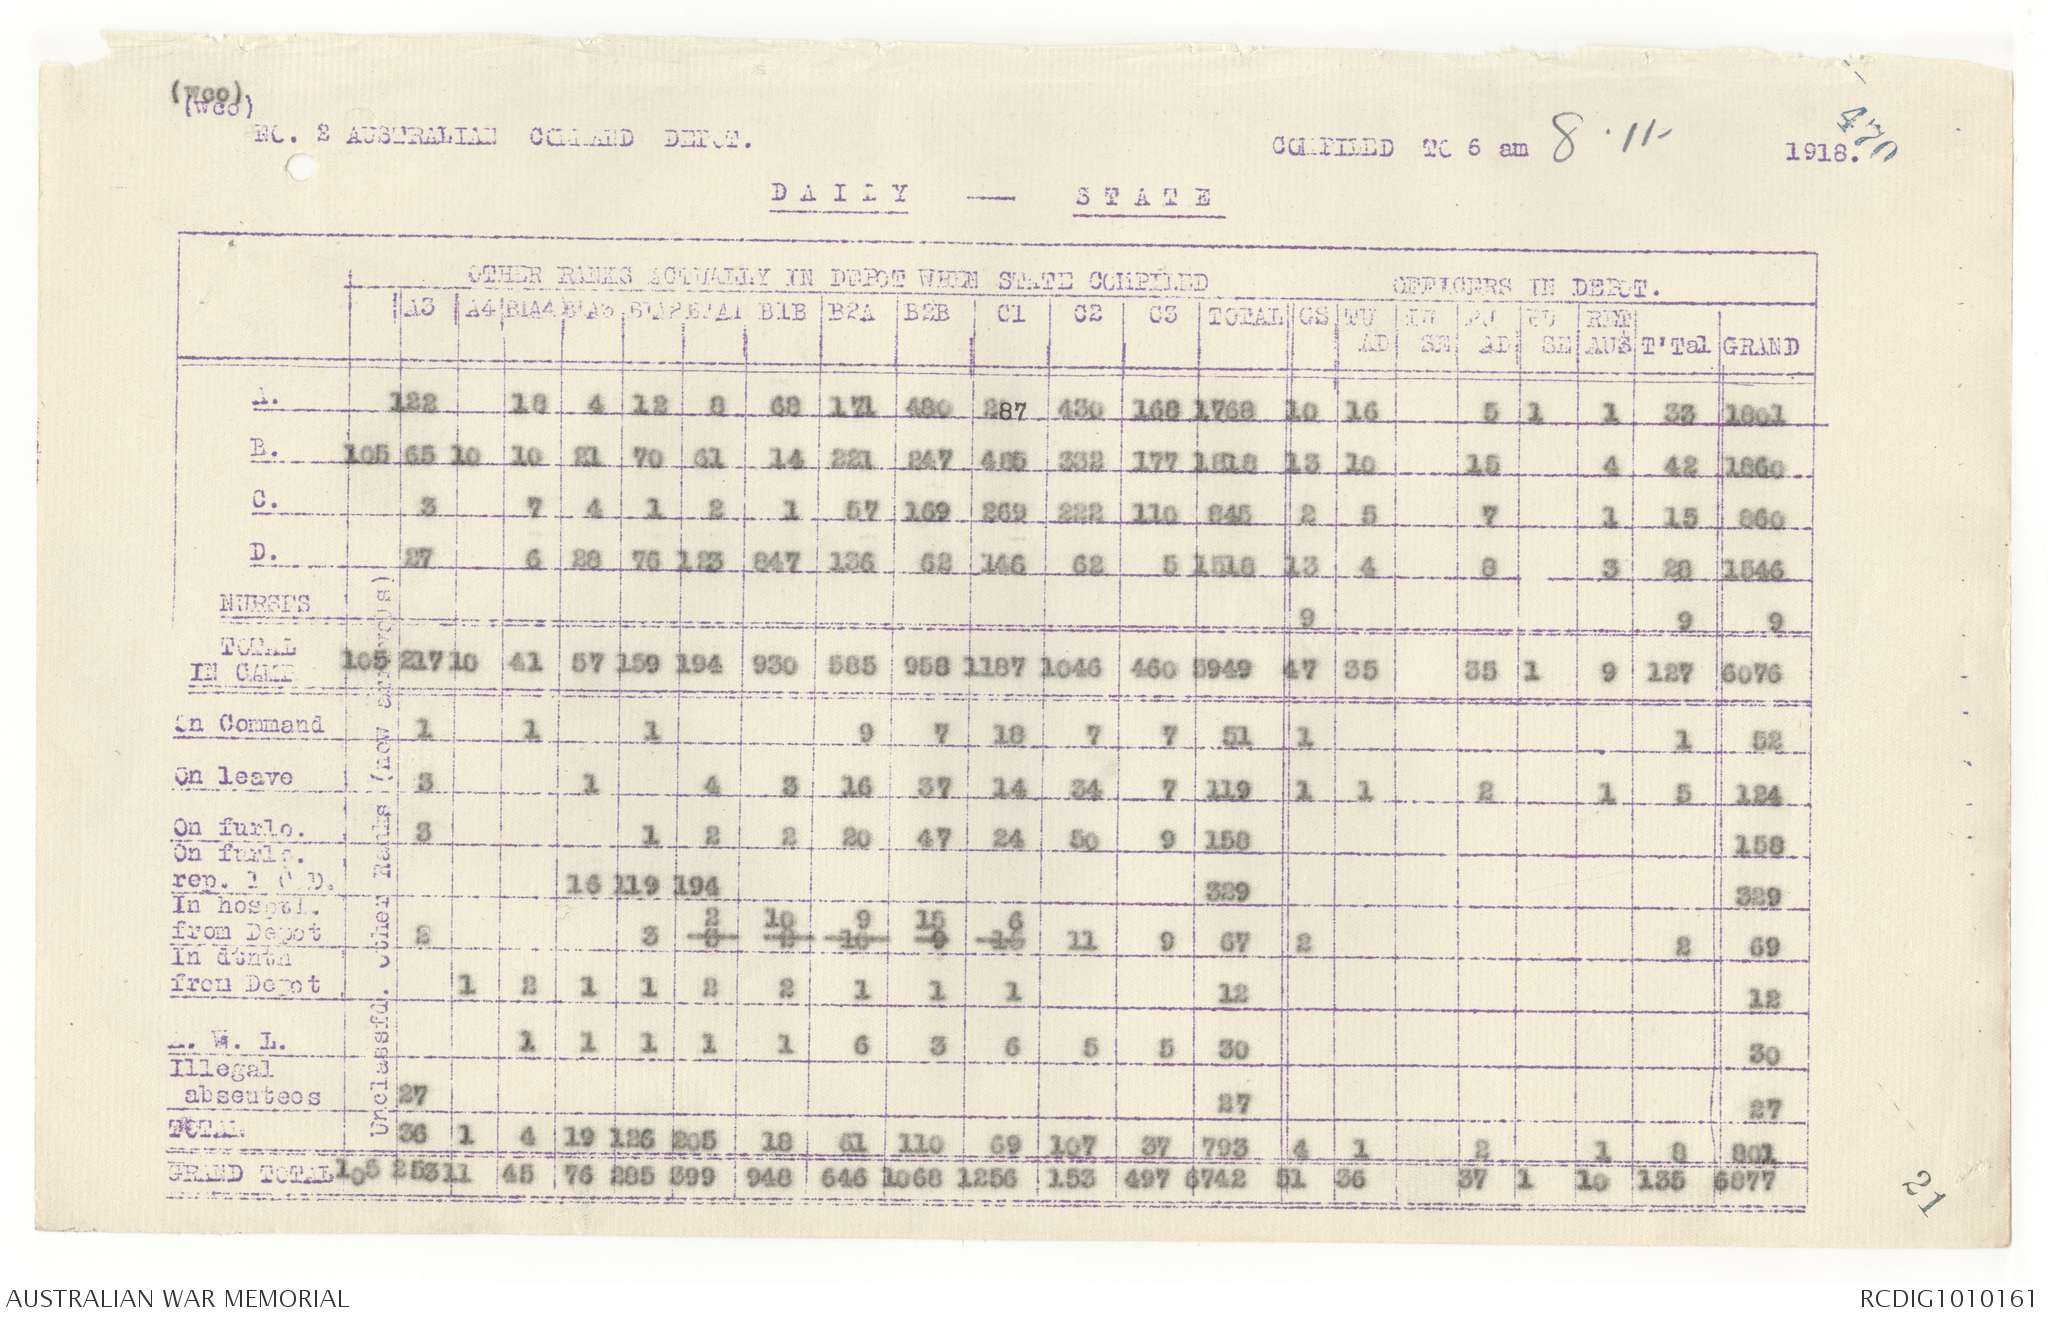 (wco)
(wco)
NO. 2 AUSTRALIAN COMMAND DEPOT. COMPILED TO 6 am 8.11. 1918. 470
DAILY — STATE
OTHER RANKS ACTUALLY IN DEPOT WHEN STATE COMPILED OFFICERS IN DEPOT.
A3 A4 B1A4 B1A3 B1A2 B1A1 B1B B2A B2B C1 C2 C3 TOTAL GS TU RET
AD SE AD SE AUS T'Tal GRAND
A. 122 18 4 12 8 68 171 480 287 430 168 1768 10 16 5 1 1 33 1801
B. 105 65 10 10 21 70 61 14 221 247 485 332 177 1818 13 10 15 4 42 1860
C. 3 7 4 1 2 1 57 169 269 222 110 845 2 5 7 1 15 860
D. 27 6 28 76 123 847 136 62 146 62 5 1518 13 4 8 3 28 1546
NURSES 9 9 9
TOTAL
IN CAMP 105 217 10 41 57 159 194 930 585 958 1187 1046 460 5949 47 35 35 1 9 127 6076
On Command 1 1 1 9 7 18 7 7 51 1 1 52
On leave 3 1 4 3 16 37 14 34 7 119 1 1 2 1 5 124
On furlo. 3 1 2 2 20 47 24 50 9 158 158
On furlo.
rep. 1 C.D. 16 119 194 329 329
In hosptl. 2 10 9 15 6
from Depot 2 3 11 9 67 2 2 69
In dtntn
from Depot 1 2 1 1 2 2 1 1 1 12 12
A. W. L. 1 1 1 1 1 6 3 6 5 5 30 30
Illegal
absentees 27 27 27
TOTAL 36 1 4 19 126 205 18 61 110 69 107 37 793 4 1 2 1 8 801
GRAND TOTAL 105 253 11 45 76 285 399 948 646 1068 1256 153 497 6742 51 36 37 1 10 135 6877
Unclassfd. Other Ranks (now arrivals)
21
AUSTRALIAN WAR MEMORIAL RCDIG1010161